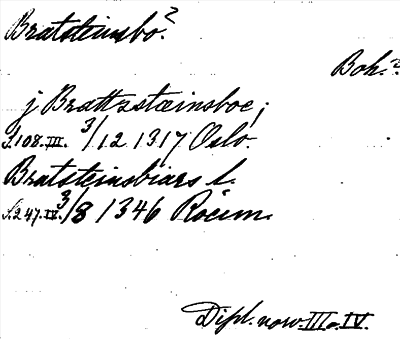 Bratsteinsbo.?
Boh.?
j Brattzstæinsboe;
S.108.III. 3/12 1317 Oslo.
Bratsteinsbiars l.
S.247.IV. 3/8 1346 Roeim.
Dipl. norv. III o. IV.